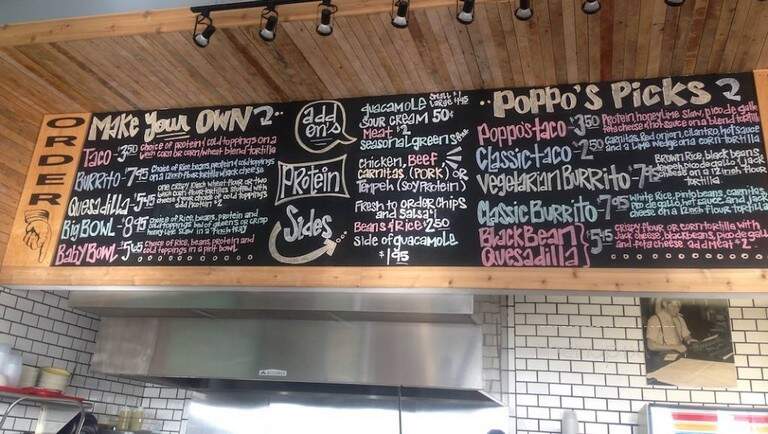 ORDER
Make Your OWN
Taco - 3.50 Choice of protein/cold toppings on a
corn or corn/wheat blend tortilla
Burrito - 7.95 Choice of Rice, beans, protein/cold toppings
on a 12inch flour tortilla w/jack cheese
Quesadilla - 5.45
Big Bowl - 8.45 Choice of Rice, beans, protein and
Baby Bowl - 5.45 Choice of Rice, beans, protein and
cold toppings in a pint bowl
add on's
guacamole small $1 Large
sour cream 50¢
Meat $2
seasonal greens
Protein
Chicken, Beef,
carnitas (PORK) or
Tempeh (soy Protein)
Sides
Fresh to order Chips
and Salsa
Beans & Rice $2.50
side of guacamole
$1.95
Poppo's Picks
Poppo's taco - 3.50 Protein, honey lime slaw, pico de gallo
feta cheese, hot sauce on a blend tortilla
Classic taco - 2.50 Carnitas, Red onion, cilantro, hot sauce
and a Lime wedge on a corn tortilla
Vegetarian Burrito - 7.45 Brown Rice, black beans,
tortilla
Classic Burrito - 7.95 White Rice, pinto beans, carnitas,
pico de gallo, hot sauce, and jack
cheese on a 12inch flour tortilla
Black Bean
Quesadilla } 5.45 crispy flour or corn tortilla with
jack cheese, black beans, pico de gallo
and feta cheese add Meat + 2